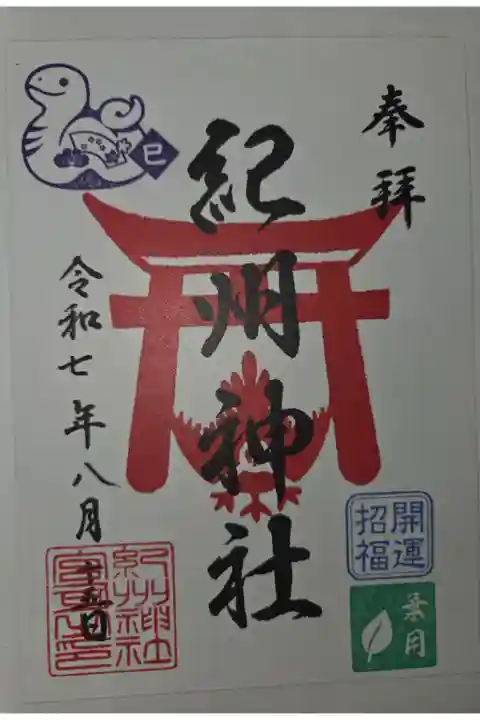 奉拝
紀州神社
令和七年八月十五日
巳
開運
招福
葉月
紀州神社
宮司之印